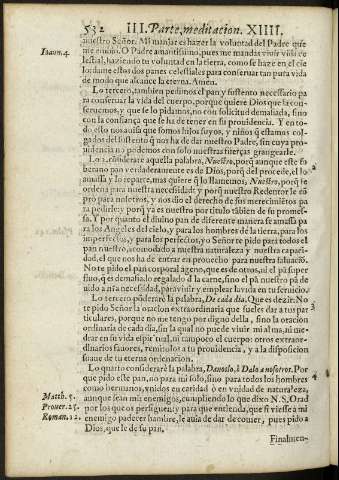 532 III. Parte, meditacion. XIIII.
nuestro Señor. Mi manjar es hazer la voluntad del Padre que
Ioann. 4. me embió. O Padre amantissimo, pues me mandas viuir vida ce
lestial, haziendo tu voluntad en la tierra, como se haze en el cie
lo: dame estos dos panes celestiales para conseruar tan pura vida
de modo que alcance la eterna. Amen.
Lo tercero, tambien pedimos el pan y sustento necessario pa
ra conseruar la vida del cuerpo, porque quiere Dios que la con-
seruemos, y que se lo pidamos, no con solicitud demasiada, sino
con la confiança que se ha de tener en su prouidencia. Y en to-
do esto nos auisa que somos hijos suyos, y niños q̃ estamos col-
gados del sustento q̃ nos ha de dar nuestro Padre, sin cuya pro-
uidencia no podemos con solo nuestras fuerças grangearle.
Lo 2. considerare aquella palabra, Nuestro, porq̃ aunque este so
berano pan verdaderamente es de Dios, porq̃ del procede, el lo 2
amassa y lo reparte, mas quiere q̃ lo llamemos, Nuestro, porq̃ se
ordena para nuestra necessidad y porq̃ nuestro Redentor le cõ
prò para nosotros, y nos dio el derecho de sus merecimiẽtos pa
ra pedirle: y porq̃ ya es nuestro por titulo tãbien de su prome-
sa. Y por quanto el diuino pan de diferente manera se amassa pa
ra los Angeles del cielo, y para los hombres de la tierra, para los
imperfectos, y para los perfectos, yo Señor te pido para todos el
pan nuestro, acomodado a nuestra naturaleza y nuestra capaci-
dad, el que nos ha de entrar en prouecho para nuestra saluaciõ.
No te pido el pan corporal ageno, que es de otros, ni el pã super
fluo, q̃ es demasiado regalado d la carne, sino el pã nuestro pã de
uido a mi necessidad, para viuir y emplear la vida en tu seruicio.
Lo tercero põderare la palabra, De cada dia. Que es dezir. No
te pido Señor la oracion extraordinaria que sueles dar a tus par 3
ticulares, porque no me tengo por digno della, sino la oracion
ordinaria de cada dia, sin la qual no puede viuir mi alma, ni me-
drar en su vida espiritual, ni tampoco el cuerpo: otros extraor-
dinarios fauores, remitolos a tu prouidencia, y a la disposicion
suaue de tu eterna ordenacion.
Lo quarto considerare la palabra, Danoslo, ò Dalo a nosotros. Por
que pido este pan, no para mi solo, sino para todos los hombres 4
como hermanos, vnidos en caridad ò en vnidad de naturaleza,
Matth. 5. aunque sean mis enemigos, cumpliendo lo que dixo N. S. Orad
Prouer. 25. por los que os persiguen: y para que entienda, que si viesse à mi
Roman. 12. enemigo padecer hambre, le auia de dar de comer, pues pido a
Dios, que le de su pan.
Finalmen-